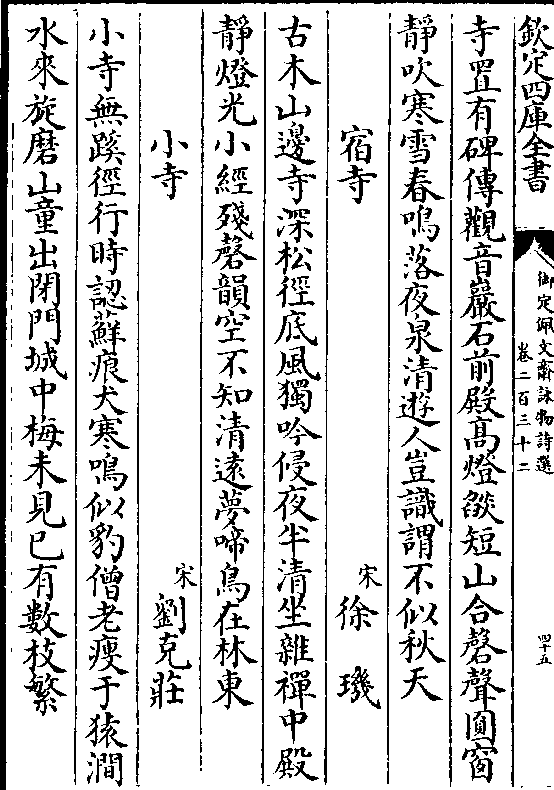 欽定四庫全書
御定佩文齋詠物詩選
卷二百三十二
四十五
寺置有碑傳觀音巖石前殿高燈燄短山合磬聲圓窗
靜吹寒雪春鳴落夜泉清遊人豈識謂不似秋天
宿寺
宋徐璣
古木山邊寺深松徑底風獨吟侵夜半清坐雜禪中殿
靜燈光小經殘磬韻空不知清遠夢啼鳥在林東
小寺
宋劉克莊
小寺無蹊徑行時認蘚痕犬寒鳴似豹僧老瘦于猿澗
水來旋磨山童出閉門城中梅未見已有數枝繁